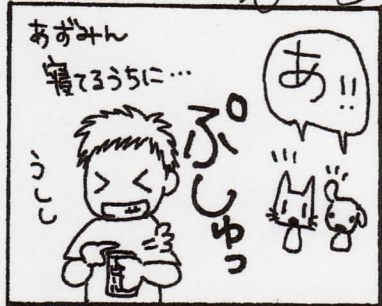 あ!!
あずみん
寝てるうちに…
ぷしゅっ
うしし